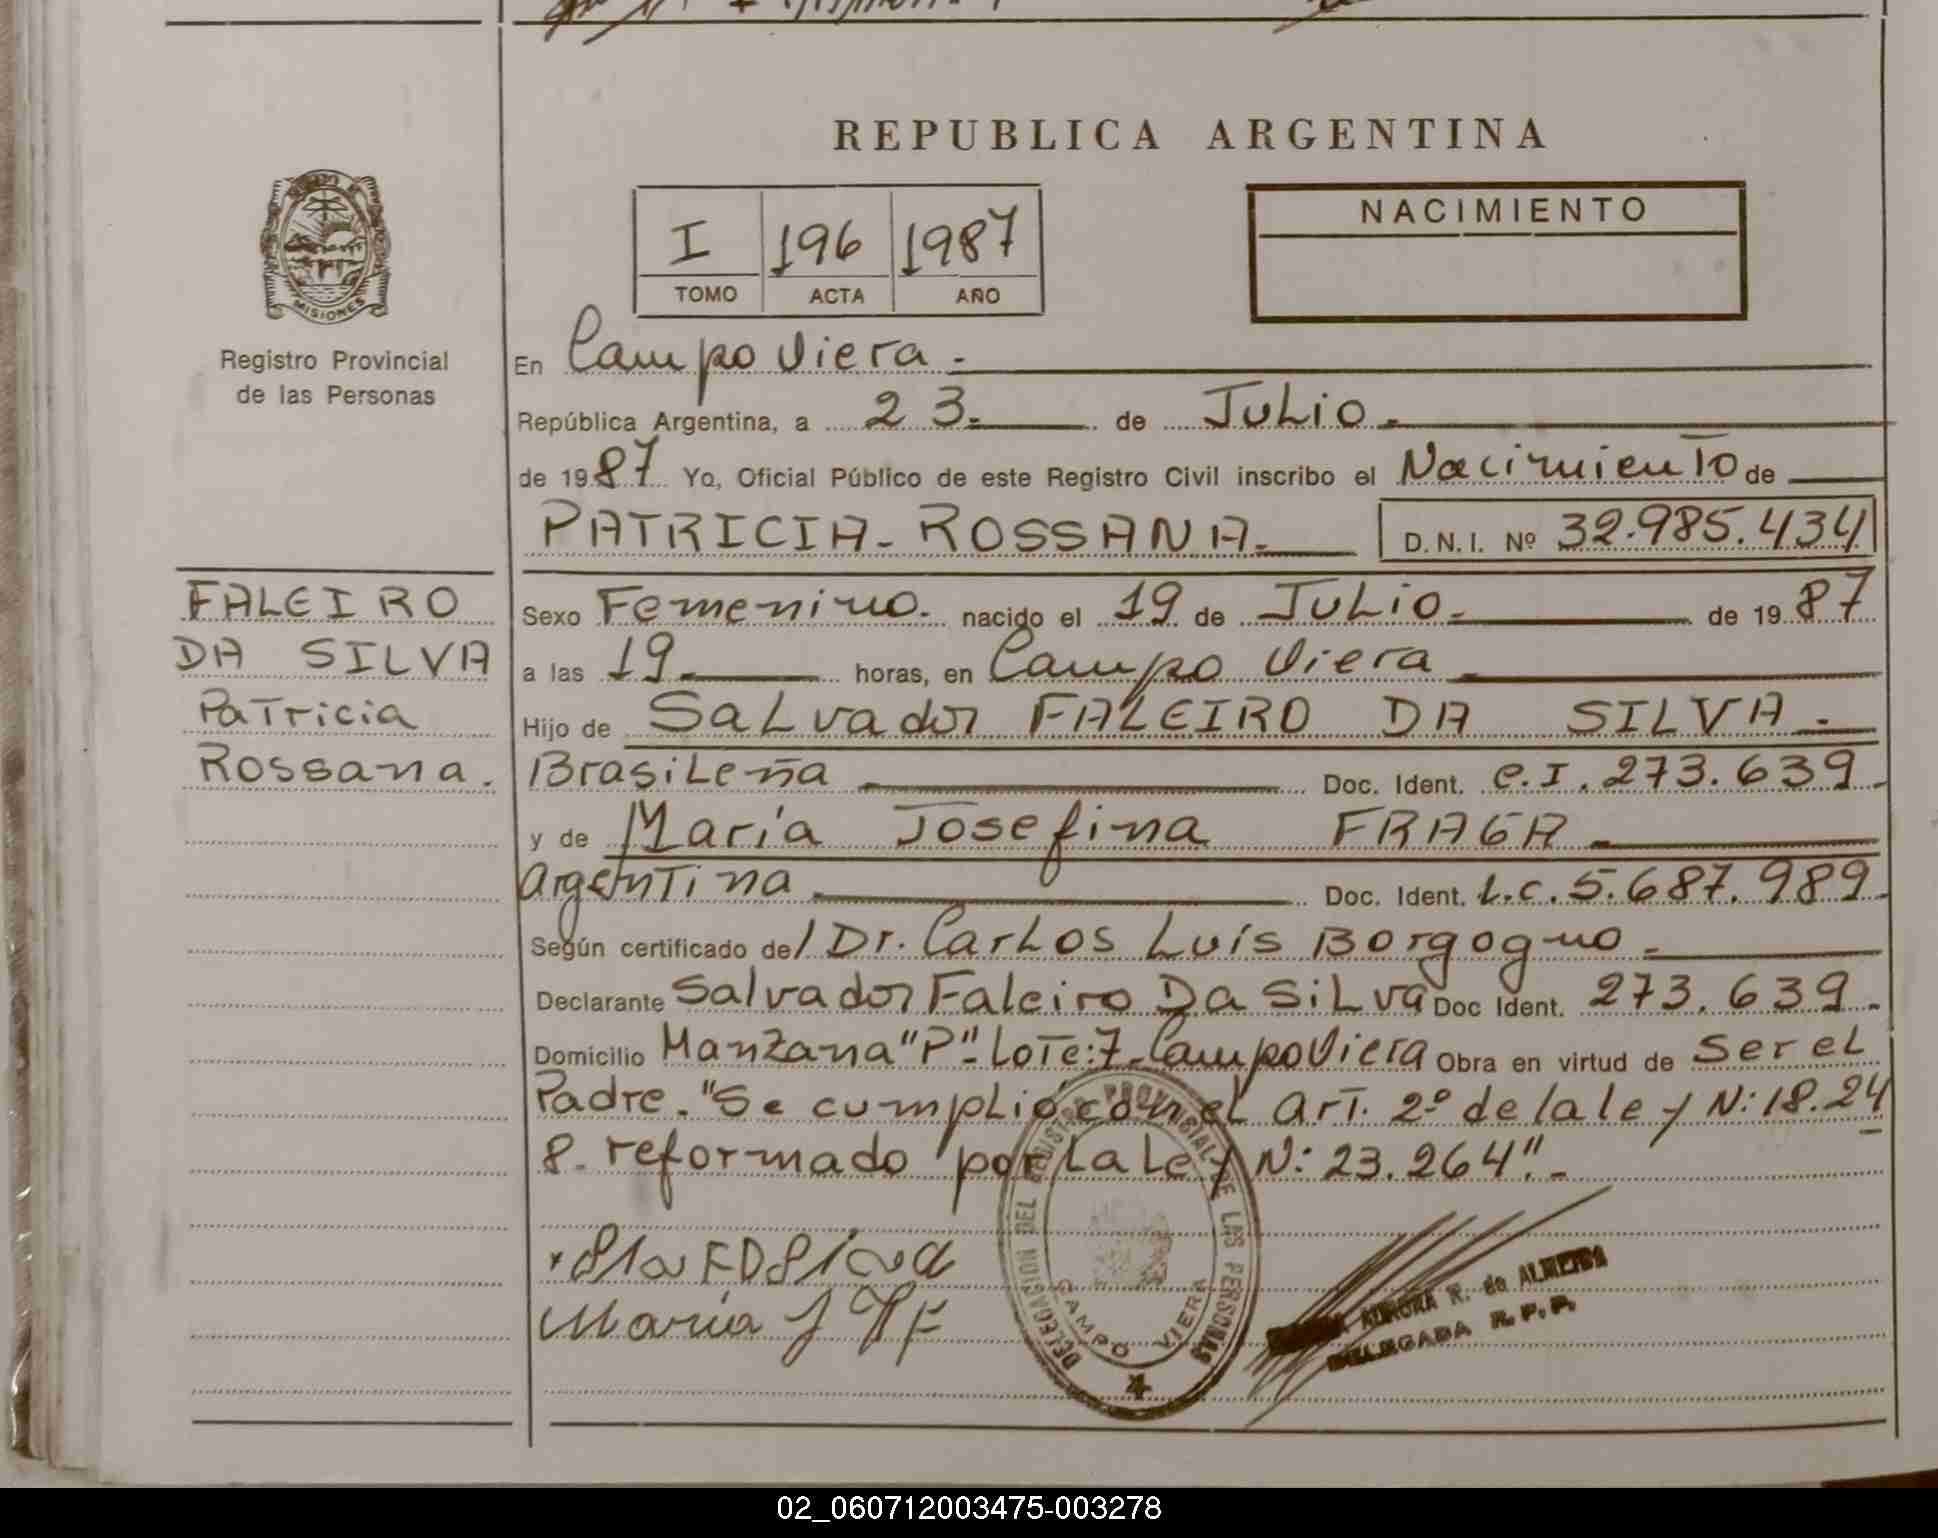 REPUBLICA ARGENTINA
MISIONES
Registro Provincial
de las Personas
I 196 1987
TOMO ACTA AÑO
NACIMIENTO
En Campo Viera.
República Argentina, a 23. de Julio.
de 1987 Yo, Oficial Público de este Registro Civil inscribo el Nacimiento de
PATRICIA-ROSSANA. D.N.I. Nº 32.985.434
FALEIRO
DA SILVA
Patricia
Rossana.
Sexo Femenino. nacido el 19 de Julio. de 1987
a las 19 horas, en Campo Viera
Hijo de Salvador FALEIRO DA SILVA.
Brasileña Doc. Ident. C.I. 273.639
y de María Josefina FRAGA
Argentina Doc. Ident. L.C. 5.687.989
Según certificado de/ Dr. Carlos Luís Borgogno.
Declarante Salvador Faleiro Da Silva Doc Ident. 273.639.
Domicilio Manzana "P". Lote:7. Campo Viera Obra en virtud de Ser el
Padre. "Se cumplió con el Art. 2º de la ley N: 18.24
8. reformado por la Ley N: 23.264".
DELEGACION DEL REGISTRO PROVINCIAL DE LAS PERSONAS
CAMPO VIERA
María J F
AURORA R. de ALMEIDA
DELEGADA R.P.P.
02_060712003475-003278